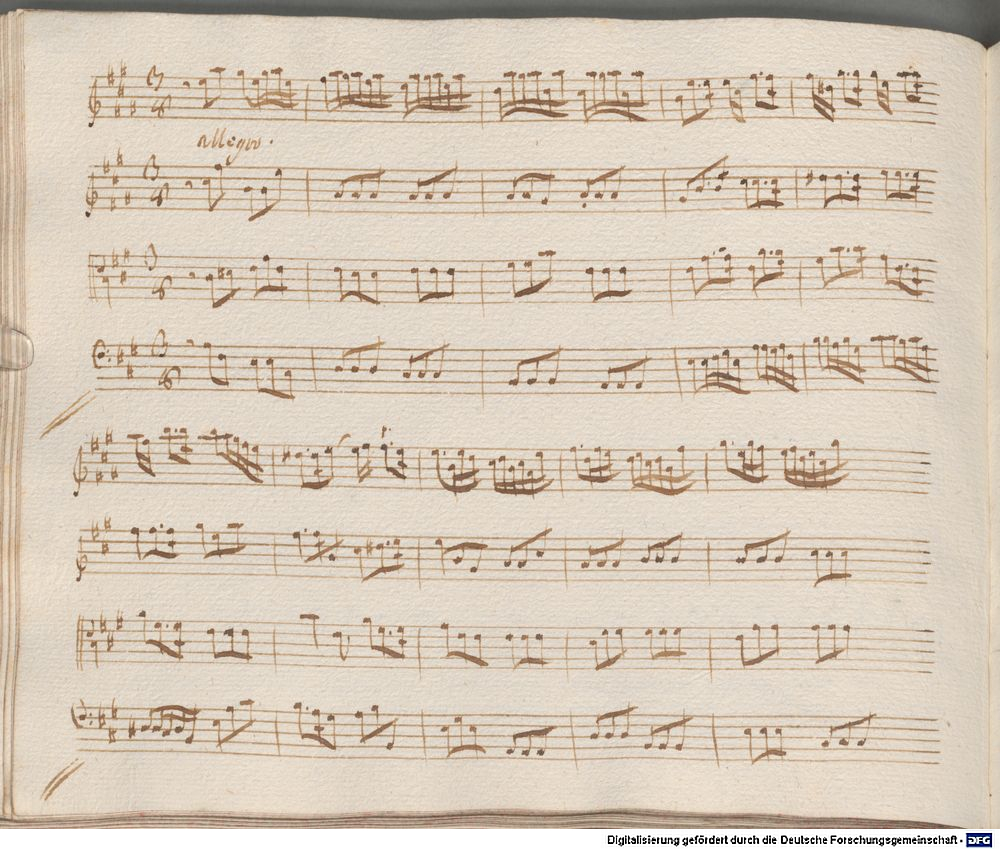 allegro.
Digitalisierung gefördert durch die Deutsche Forschungsgemeinschaft - DFG